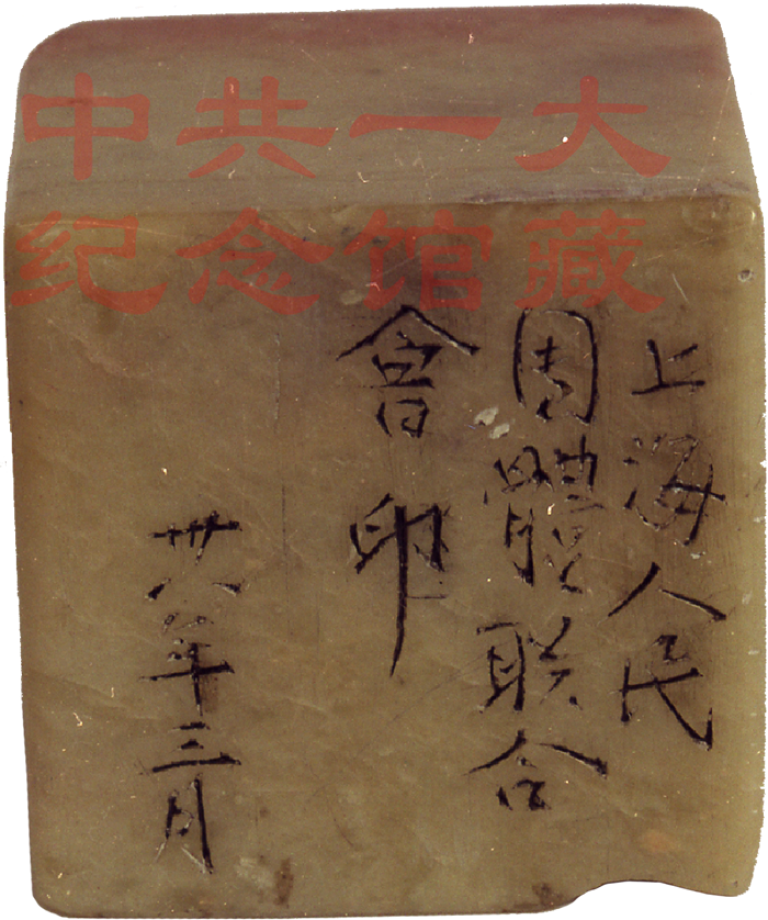 中共一大
纪念馆藏
上海人民
团體联合
會印
卅八年三月